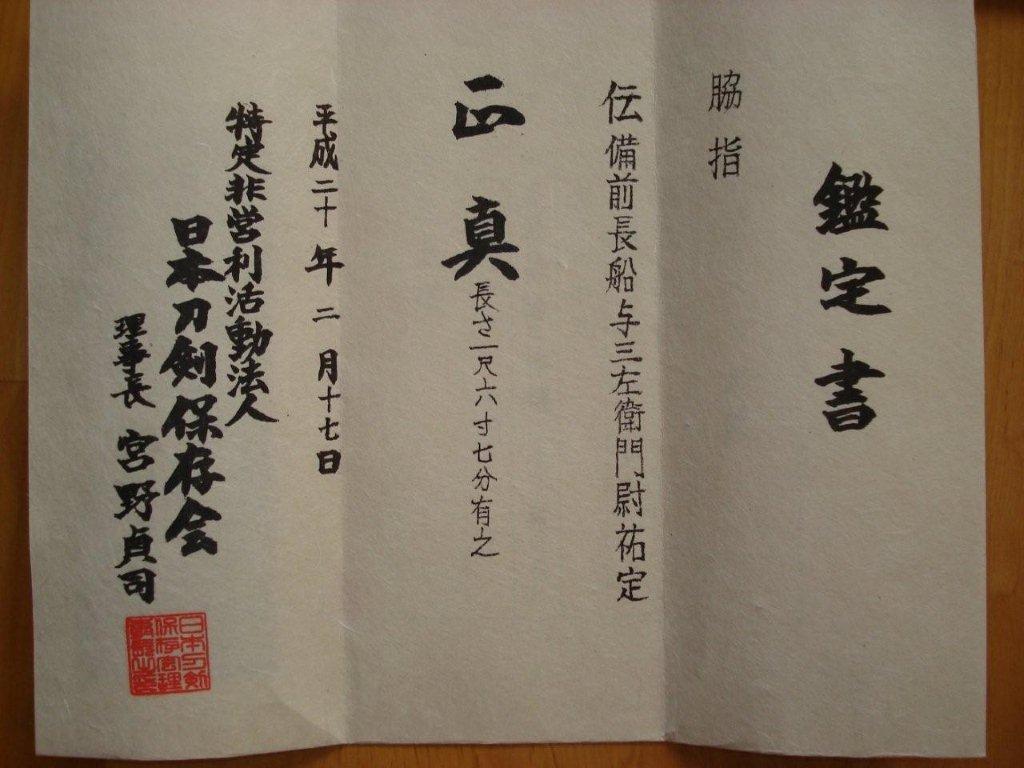 鑑定書
脇指
伝備前長船与三左衛門尉祐定
正真
長さ一尺六寸七分有之
平成二十年二月十七日
特定非営利活動法人
日本刀剣保存会
理事長 宮野貞司